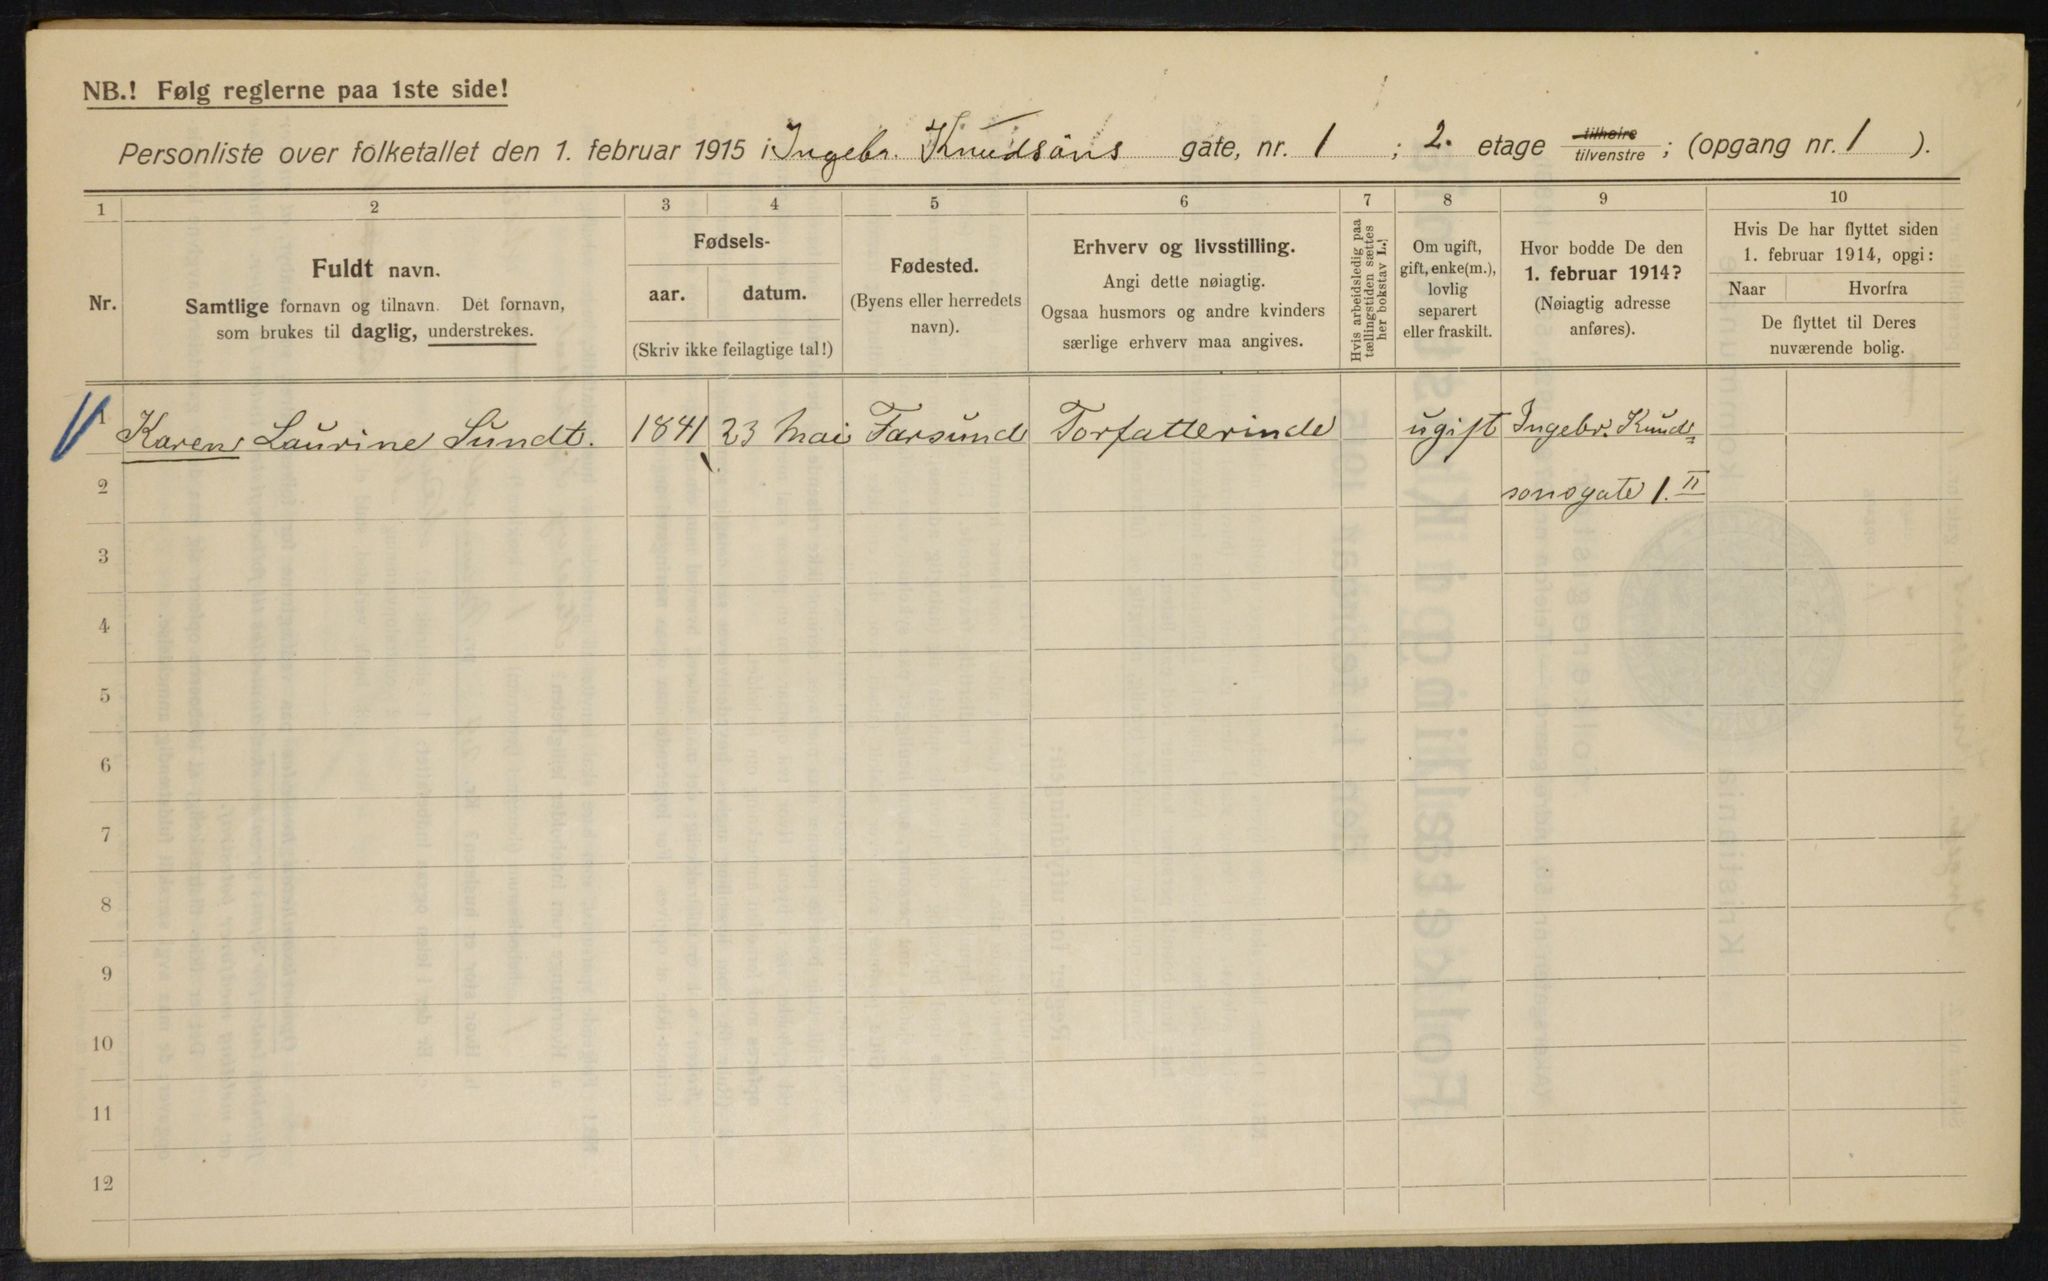 NB.! Følg reglerne paa 1ste side!
Personliste over folketallet den 1. februar 1915 i Ingebr. Knudsöns gate, nr. 1 ; 2. etage tilhøire tilvenstre ; (opgang nr. 1 ).
1 2 3 4 5 6 7 8 9 10
Nr.
Fuldt navn.
Samtlige fornavn og tilnavn. Det fornavn,
som brukes til daglig, understrekes.
Fødsels-
aar. datum.
(Skriv ikke feilagtige tal!)
Fødested.
(Byens eller herredets
navn).
Erhverv og livsstilling.
Angi dette nøiagtig.
Ogsaa husmors og andre kvinders
særlige erhverv maa angives.
Hvis arbeidsledig paa
tællingstiden sættes
her bokstav L.
Om ugift,
gift, enke(m.),
lovlig
separert
eller fraskilt.
Hvor bodde De den
1. februar 1914?
(Nøiagtig adresse
anføres).
Hvis De har flyttet siden
1. februar 1914, opgi:
Naar Hvorfra
De flyttet til Deres
nuværende bolig.
1 Karen Laurine Sundt. 1841 23 Mai Farsund Forfatterinde ugift Ingebr. Knud=
2 sonsgate 1. II
3
4
5
6
7
8
9
10
11
12